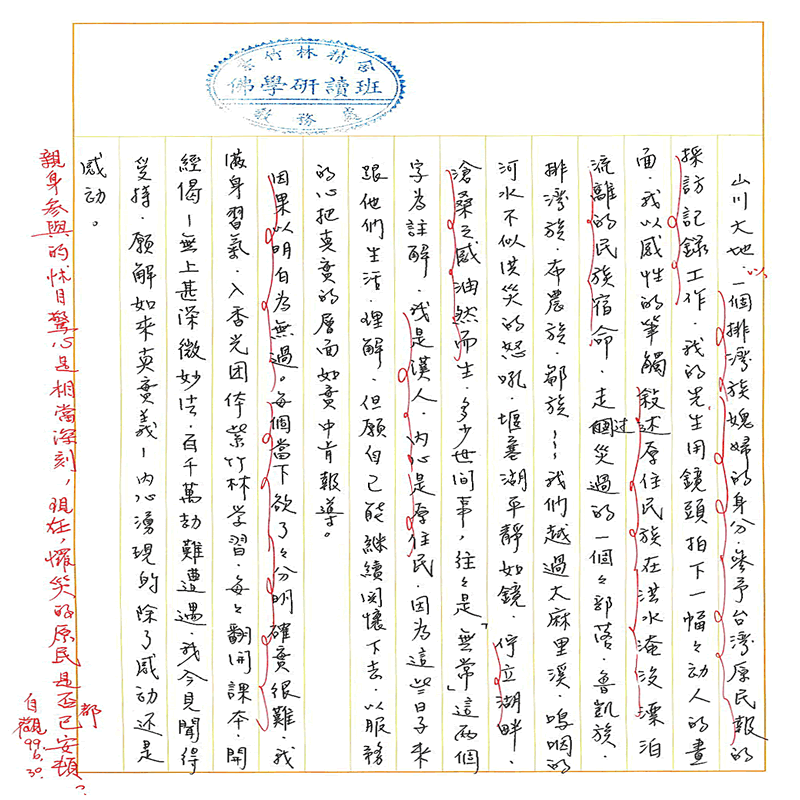 紫竹林精舍
佛學研讀班
教務處
山川大地、以一個排灣族媳婦的身分、參予台灣原民報的
採訪記錄工作、我的先生用鏡頭拍下一幅々動人的畫
面、我以感性的筆觸敘述原住民族在洪水淹沒漂泊
流離的民族宿命、走過災過的一個々部落、魯凱族、
排灣族、布農族、鄒族……我們越過太麻里溪、嗚咽的
河水不似洪災的怒吼、堰塞湖平靜如鏡、佇立湖畔、
滄桑之感油然而生、多少世間事，往々是「無常」這兩個
字為註解、我是漢人、內心是原住民、因為這些日子來
跟他們生活、理解、但願自己能繼續関懷下去、以服務
的心把真實的層面如實中肯報導。
因果以明白為無過。每個當下欲了々分明確實很難、我
滿身習氣、入香光団倚紫竹林学習、每々翻開課本、開
經偈－無上甚深微妙法、百千萬劫難遭遇、我今見聞得
受持、願解如來真實義－內心湧現的除了感动還是
感动。
親身參與的怵目驚心是相當深刻，現在，罹災的原民是否都已安頓？
自觀
99.6.30.